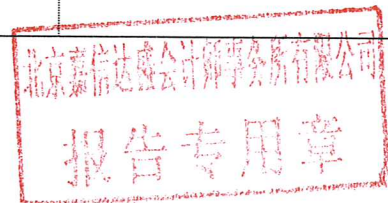 北京嘉信达盛会计师事务所有限公司
报告专用章